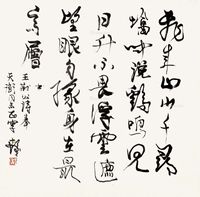 飛来山上千尋
塔聞説鷄鳴見
日升不畏浮雲遮
望眼自緣身在最
高層
王荆公詩奉